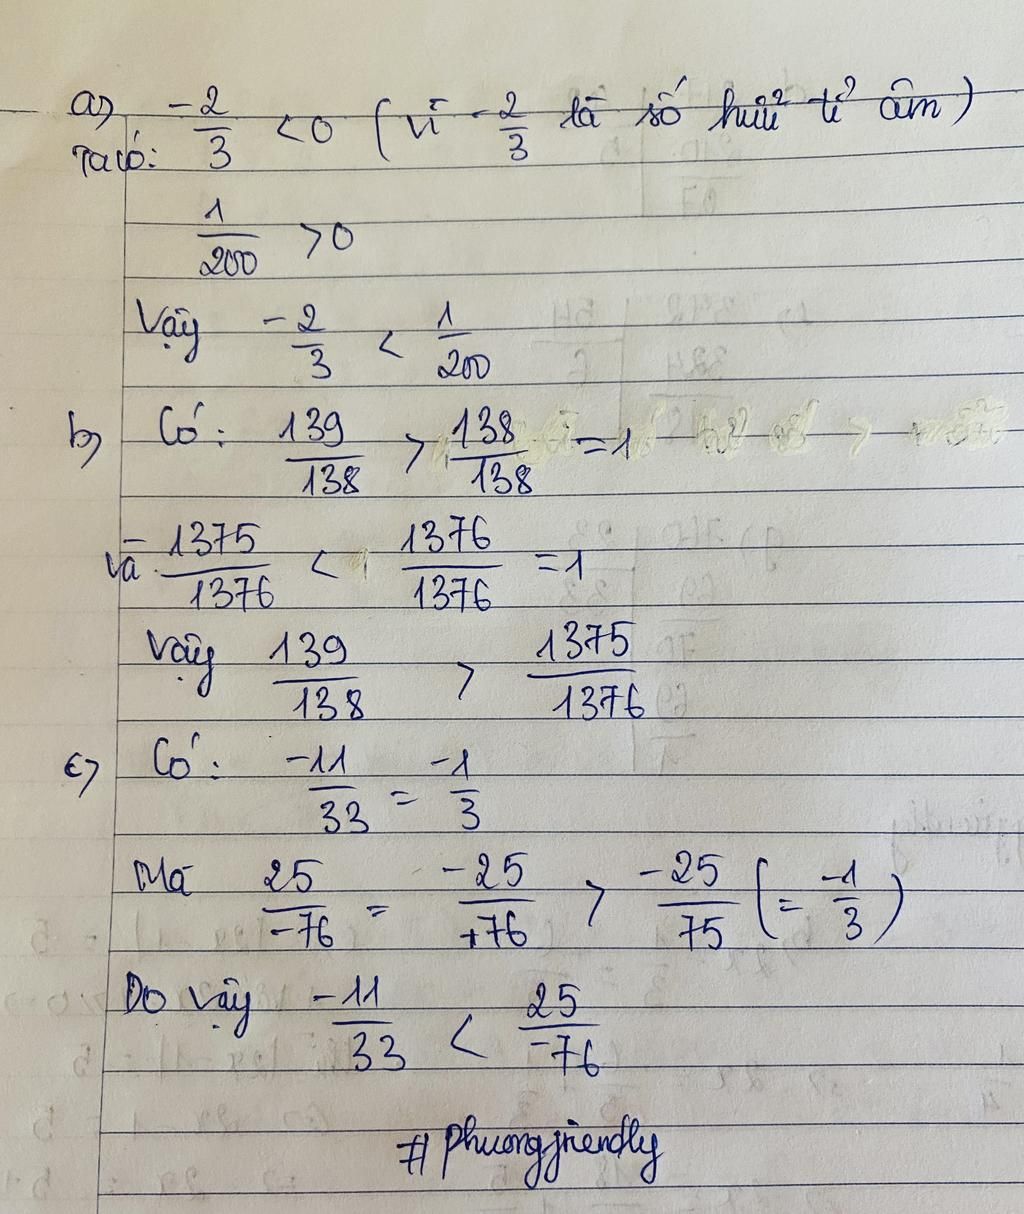 a) -2/3 < 0 ( vì -2/3 là số hữu tỉ âm )
Ta có:
1/200 > 0
Vậy -2/3 < 1/200
b) Có: 139/138 > 138/138 = 1
Và 1375/1376 < 1376/1376 = 1
Vậy 139/138 > 1375/1376
c) Có: -11/33 = -1/3
Mà 25/-76 = -25/+76 > -25/75 (= -1/3)
Do vậy -11/33 < 25/-76
# phuongfriendly